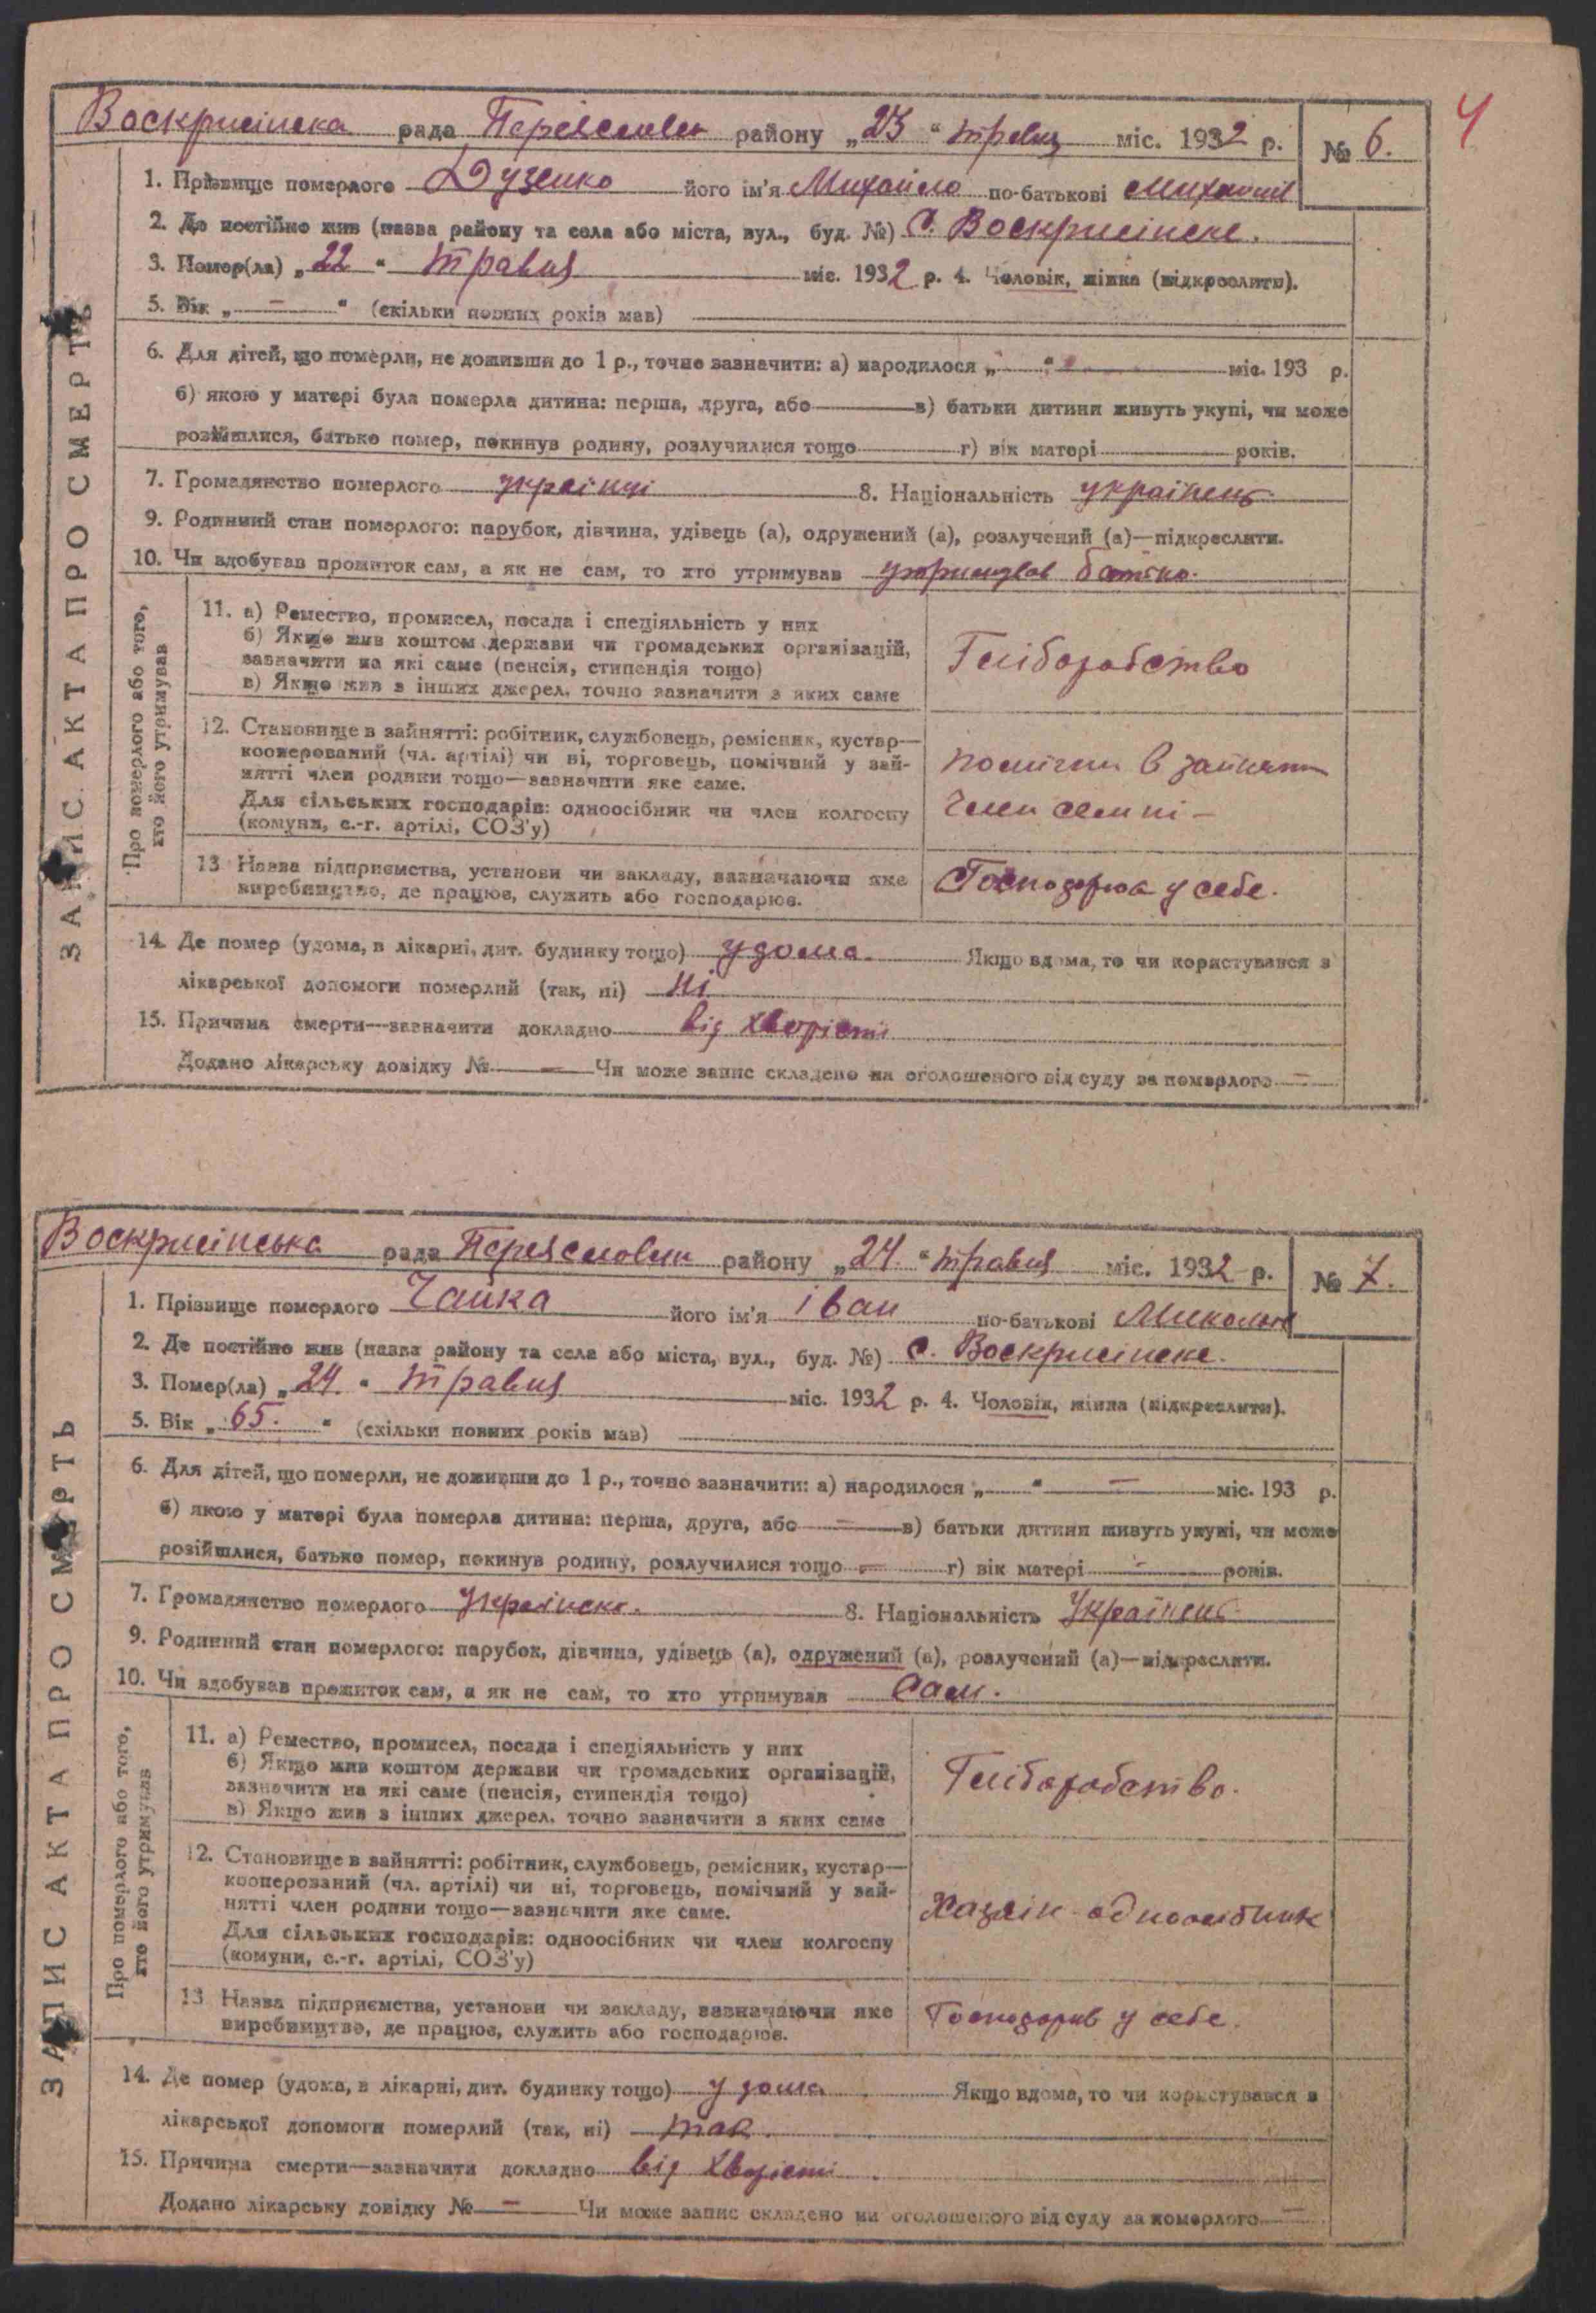 4
Воскрисінска рада Переяславськ району „23“ травня міс. 1932 р. № 6.
1. Прізвище померлого Дузенко його ім'я Михайло по-батькові Михайлів
2. Де постійно жив (назва району та села або міста, вул., буд. №) С. Воскрисінске.
3. Помер(ла) „22“ травня міс. 1932 р. 4. Чоловік, жінка (підкреслити).
5. Вік „—“ (скільки повних років мав)
6. Для дітей, що померли, не доживши до 1 р., точно зазначити: а) народилося „ “ міс. 193 р.
б) якою у матері була померла дитина: перша, друга, або в) батьки дитини живуть укупі, чи може
розійшлися, батько помер, покинув родину, розлучилися тощо г) вік матері років.
7. Громадянство померлого українці 8. Національність українець.
9. Родинний стан померлого: парубок, дівчина, удівець (а), одружений (а), розлучений (а)—підкреслити.
10. Чи здобував прожиток сам, а як не сам, то хто утримував утримував батько.
ЗАПИС АКТА ПРО СМЕРТЬ
Про померлого або того,
хто його утримував
11. а) Ремество, промисел, посада і спеціяльність у них
б) Якщо жив коштом держави чи громадських організацій,
зазначити на які саме (пенсія, стипендія тощо)
в) Якщо жив з інших джерел, точно зазначити з яких саме
Гліборобство
12. Становище в зайнятті: робітник, службовець, ремісник, кустар—
кооперований (чл. артілі) чи ні, торговець, помічний у зай-
нятті член родини тощо—зазначити яке саме.
Для сільських господарів: одноосібник чи член колгоспу
(комуни, с.-г. артілі, СОЗ'у)
помічни в занятт
член семні —
13 Назва підприємства, установи чи закладу, зазначаючи яке
виробництво, де працює, служить або господарює.
Господорює у себе.
14. Де помер (удома, в лікарні, дит. будинку тощо) удома. Якщо вдома, то чи користувався з
лікарської допомоги померлий (так, ні) ні
15. Причина смерти—зазначити докладно від хворісти
Додано лікарську довідку № — Чи може запис складено на оголошеного від суду за померлого —
Воскрисінська рада Переяславськ району „24.“ травня міс. 1932 р. № 7.
1. Прізвище померлого Чайка його ім'я іван по-батькові Миколаєв
2. Де постійно жив (назва району та села або міста, вул., буд. №) с. Воскрисінске.
3. Помер(ла) „24.“ травня міс. 1932 р. 4. Чоловік, жінка (підкреслити).
5. Вік „65.“ (скільки повних років мав)
6. Для дітей, що померли, не доживши до 1 р., точно зазначити: а) народилося „ “ — міс. 193 р.
б) якою у матері була померла дитина: перша, друга, або — в) батьки дитини живуть укупі, чи може
розійшлися, батько помер, покинув родину, розлучилися тощо — г) вік матері — років.
7. Громадянство померлого Українске. 8. Національність Українець.
9. Родинний стан померлого: парубок, дівчина, удівець (а), одружений (а), розлучений (а)—підкреслити.
10. Чи здобував прожиток сам, а як не сам, то хто утримував Сам.
ЗАПИС АКТА ПРО СМЕРТЬ
Про померлого або того,
хто його утримував
11. а) Ремество, промисел, посада і спеціяльність у них
б) Якщо жив коштом держави чи громадських організацій,
зазначити на які саме (пенсія, стипендія тощо)
в) Якщо жив з інших джерел, точно зазначити з яких саме
Гліборобство.
12. Становище в зайнятті: робітник, службовець, ремісник, кустар—
кооперований (чл. артілі) чи ні, торговець, помічний у зай-
нятті член родини тощо—зазначити яке саме.
Для сільських господарів: одноосібник чи член колгоспу
(комуни, с.-г. артілі, СОЗ'у)
Хазяїн одноосібник
13 Назва підприємства, установи чи закладу, зазначаючи яке
виробництво, де працює, служить або господарює.
Господорив у себе.
14. Де помер (удома, в лікарні, дит. будинку тощо) у дома. Якщо вдома, то чи користувався з
лікарської допомоги померлий (так, ні) так.
15. Причина смерти—зазначити докладно від хворісти.
Додано лікарську довідку № — Чи може запис складено на оголошеного від суду за померлого —